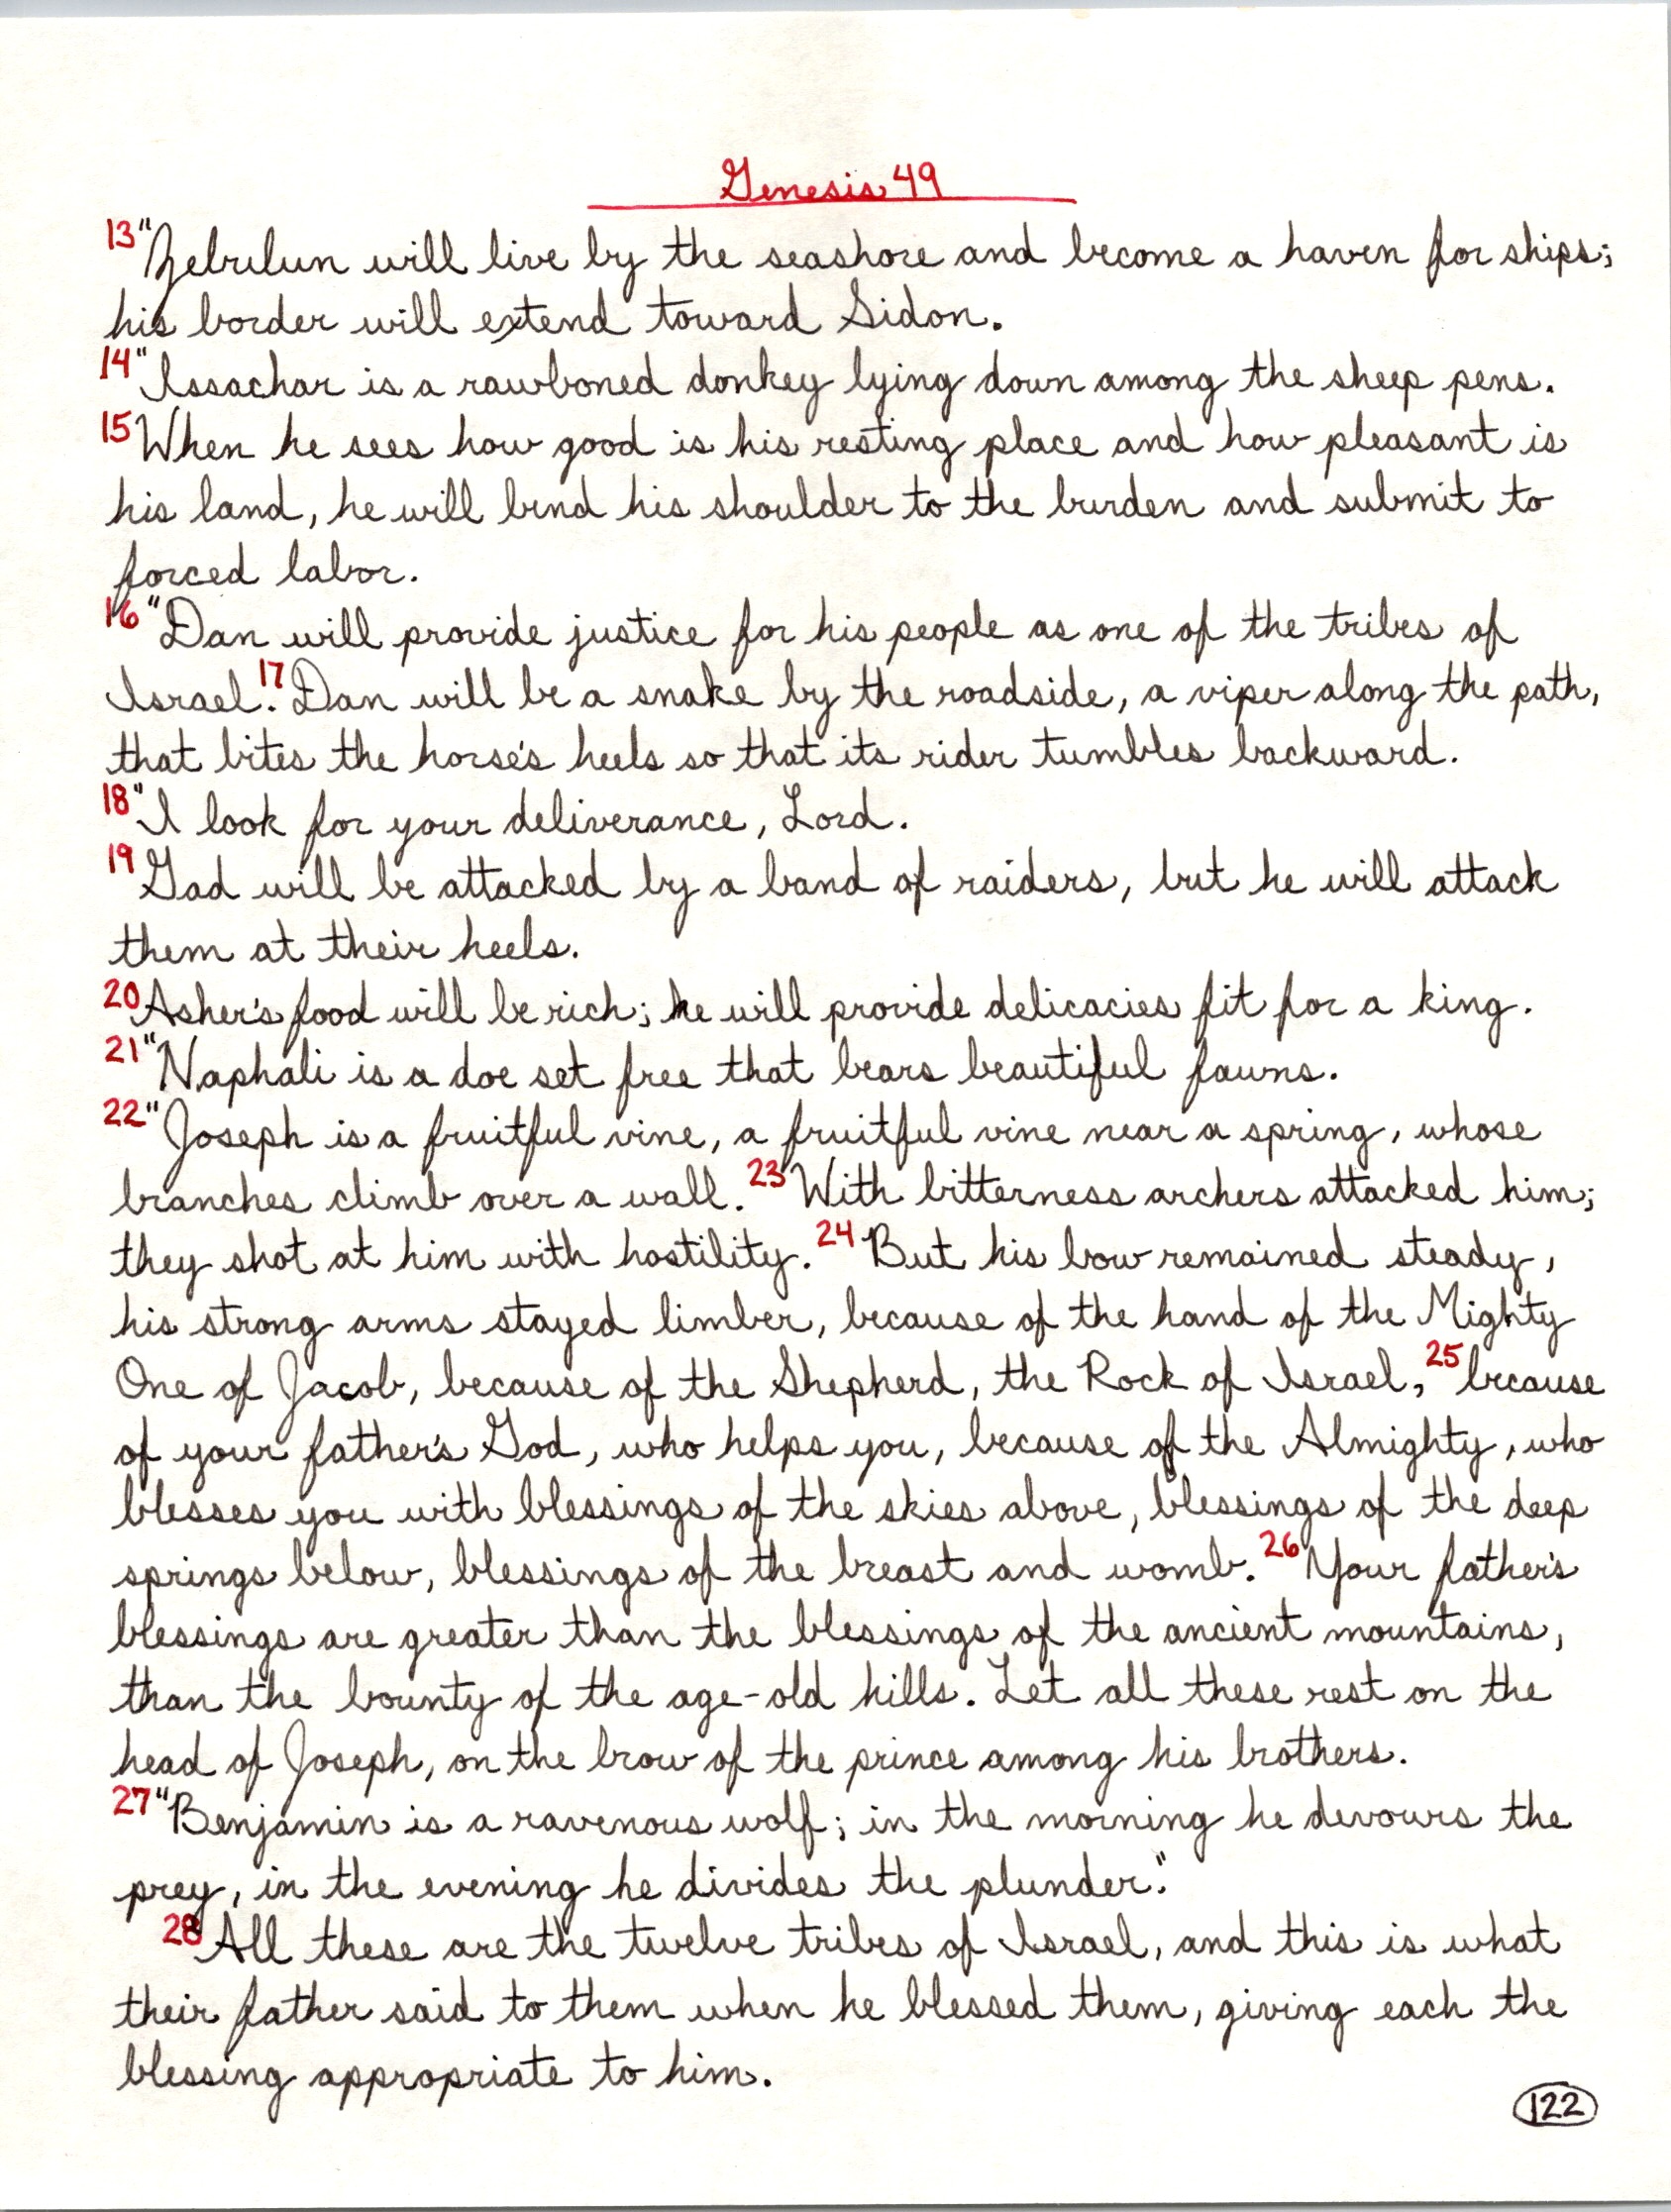 Genesis 49
13"Zebulun will live by the seashore and become a haven for ships;
his border will extend toward Sidon.
14"Issachar is a rawboned donkey lying down among the sheep pens.
15When he sees how good is his resting place and how pleasant is
his land, he will bend his shoulder to the burden and submit to
forced labor.
16"Dan will provide justice for his people as one of the tribes of
Israel. 17Dan will be a snake by the roadside, a viper along the path,
that bites the horse's heels so that its rider tumbles backward.
18"I look for your deliverance, Lord.
19Gad will be attacked by a band of raiders, but he will attack
them at their heels.
20Asher's food will be rich; he will provide delicacies fit for a king.
21"Naphali is a doe set free that bears beautiful fawns.
22"Joseph is a fruitful vine, a fruitful vine near a spring, whose
branches climb over a wall. 23With bitterness archers attacked him;
they shot at him with hostility. 24But his bow remained steady,
his strong arms stayed limber, because of the hand of the Mighty
One of Jacob, because of the Shepherd, the Rock of Israel, 25because
of your father's God, who helps you, because of the Almighty, who
blesses you with blessings of the skies above, blessings of the deep
springs below, blessings of the breast and womb. 26Your father's
blessings are greater than the blessings of the ancient mountains,
than the bounty of the age-old hills. Let all these rest on the
head of Joseph, on the brow of the prince among his brothers.
27"Benjamin is a ravenous wolf; in the morning he devours the
prey, in the evening he divides the plunder."
28All these are the twelve tribes of Israel, and this is what
their father said to them when he blessed them, giving each the
blessing appropriate to him.
122